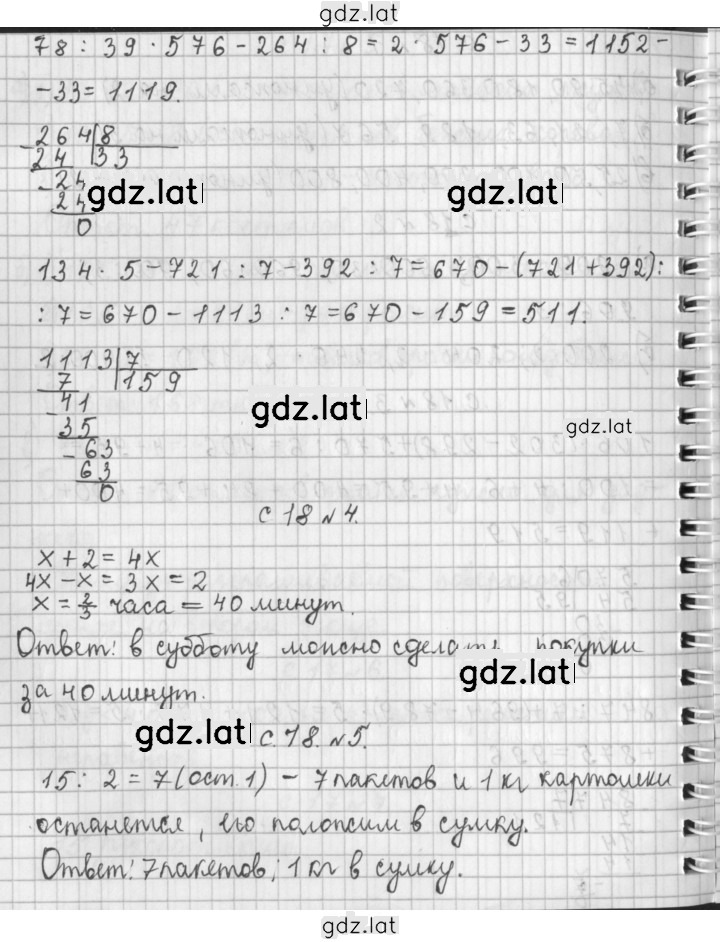 gdz.lat
78 : 39 · 576 - 264 : 8 = 2 · 576 - 33 = 1152 -
- 33 = 1119.
264 | 8
24 | 33
- 24
24
0
gdz.lat gdz.lat
134 · 5 - 721 : 7 - 392 : 7 = 670 - (721 + 392) :
: 7 = 670 - 1113 : 7 = 670 - 159 = 511.
1113 | 7
7 | 159
- 41
35
- 63
63
0
gdz.lat gdz.lat
с 18 №4.
x + 2 = 4x
4x - x = 3x = 2
x = 2/3 часа = 40 минут.
Ответ: в субботу можно сделать покупки
gdz.lat
за 40 минут.
gdz.lat с. 18. №5.
15 : 2 = 7 (ост. 1) - 7 пакетов и 1 кг картошки
останется, его положим в сумку.
Ответ: 7 пакетов; 1 кг в сумку.
gdz.lat